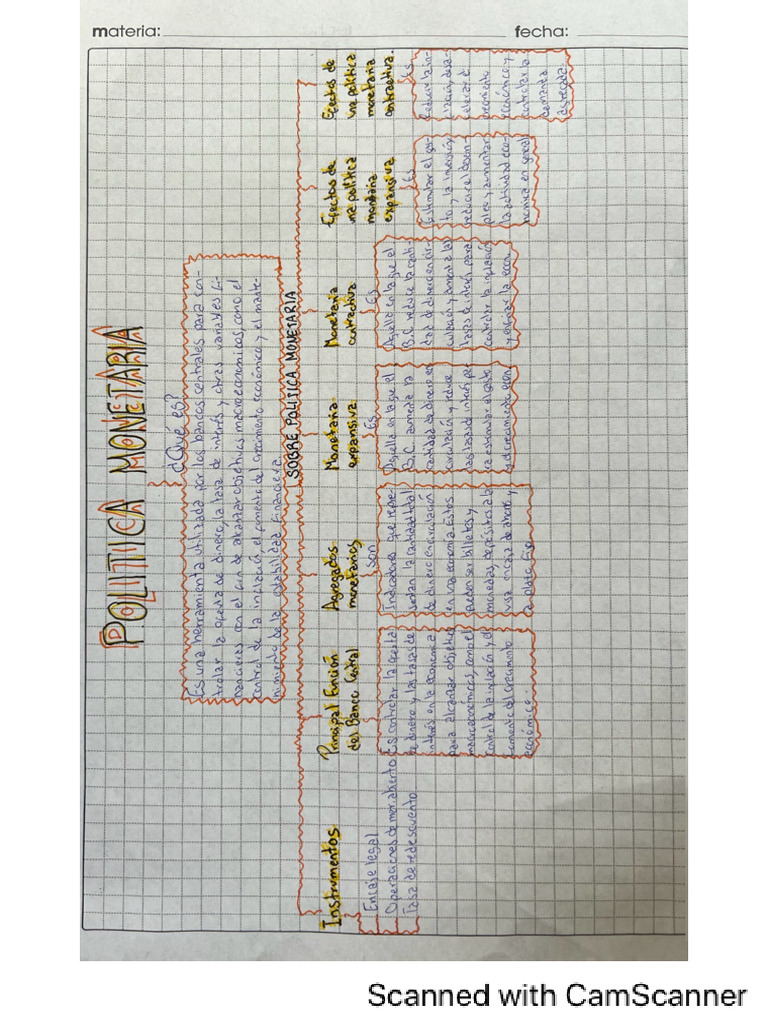 materia:
fecha:
POLITICA MONETARIA
¿Qué es?
Es una herramienta utilizada por los bancos centrales para con-
trolar la oferta de dinero, la tasa de interés y otras variables fi-
nancieras con el fin de alcanzar objetivos macroeconomicos, como el
control de la inflación, el fomento del crecimiento económico y el mante-
nimiento de la estabilidad financiera.
SOBRE POLITICA MONETARIA
Instrumentos
Encaje legal
Operaciones de mer. abierto
Tasa de redescuento
Principal Función
del Banco Central
Es controlar la oferta
de dinero y las tasas de
interés en la economía
para alcanzar objetivos
macroeconomicos, como el
control de la inflación y el
fomento del crecimiento
económico.
Agregados
monetarios
son
Indicadores que repre-
sentan la cantidad total
de dinero en circulación
en una economía. Estos
pueden ser billetes y
monedas, depósitos a la
vista en caja de ahorro y
a plazo fijo.
Monetaria
expansiva
Es
Aquella en la que el
B.C. aumenta la
cantidad de dinero en
circulación y reduce
las tasas de interés pa
ra estimular el gasto
y el crecimiento econ.
Monetaria
contractiva
Es
Aquello en la que el
B.C. reduce la canti-
dad de dinero en cir-
culación y aumenta las
tasas de interés para
controlar la inflación
y enfriar la econ.
Efectos de
una política
monetaria
expansiva
Es
Estimular el gas-
to y la inversión,
reducir el desem-
pleo y aumentar
la actividad eco-
nomica en general
Efectos de
una política
monetaria
contractiva.
Es
Reducir la in-
flación, desa-
celerar el
crecimiento
económico y
controlar la
demanda
agregada.
Scanned with CamScanner